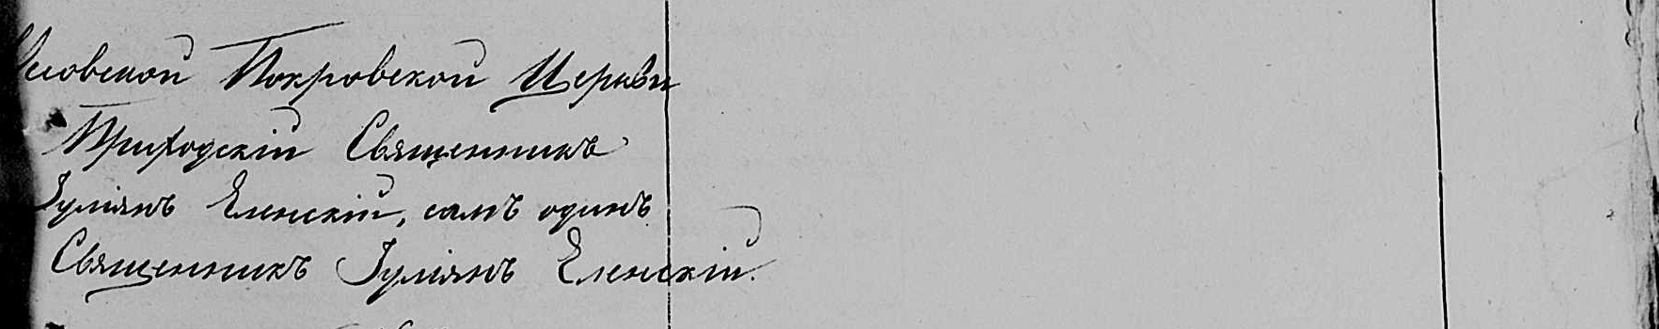 Покровской Церкви
Приходскій Священникъ
Іуліянъ Еленскій, самъ одинъ
Священникъ Іуліянъ Еленскій.